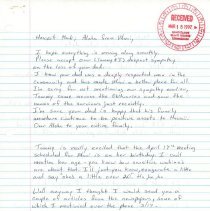 RECEIVED
MAR 18 1997
I hope everything is moving along smoothly.
Please accept our (Tammy & I) deepest sympathy
on the loss of your dad.
I know your dad was a deeply respected man in the
Community and has made Maui a better place for all.
I'm sorry for not mentioning our sympathy earlier,
Tammy came across the Obituaries and saw the
news of the services just recently.
I'm sure your dad is happy that his family
members continue to be positive assets to Maui.
Our Aloha to your entire family.
Tammy is really excited that the April 17th meeting
scheduled for Maui is on her birthday. I can't
mention her age - you know how sensitive women
are about that. I'll just you know, exaggerate a little
and say she's a little over 20. Ha Ha Ha
Well anyway I thought I would send you a
couple of articles from the newspaper, some of
which I mentioned over the phone